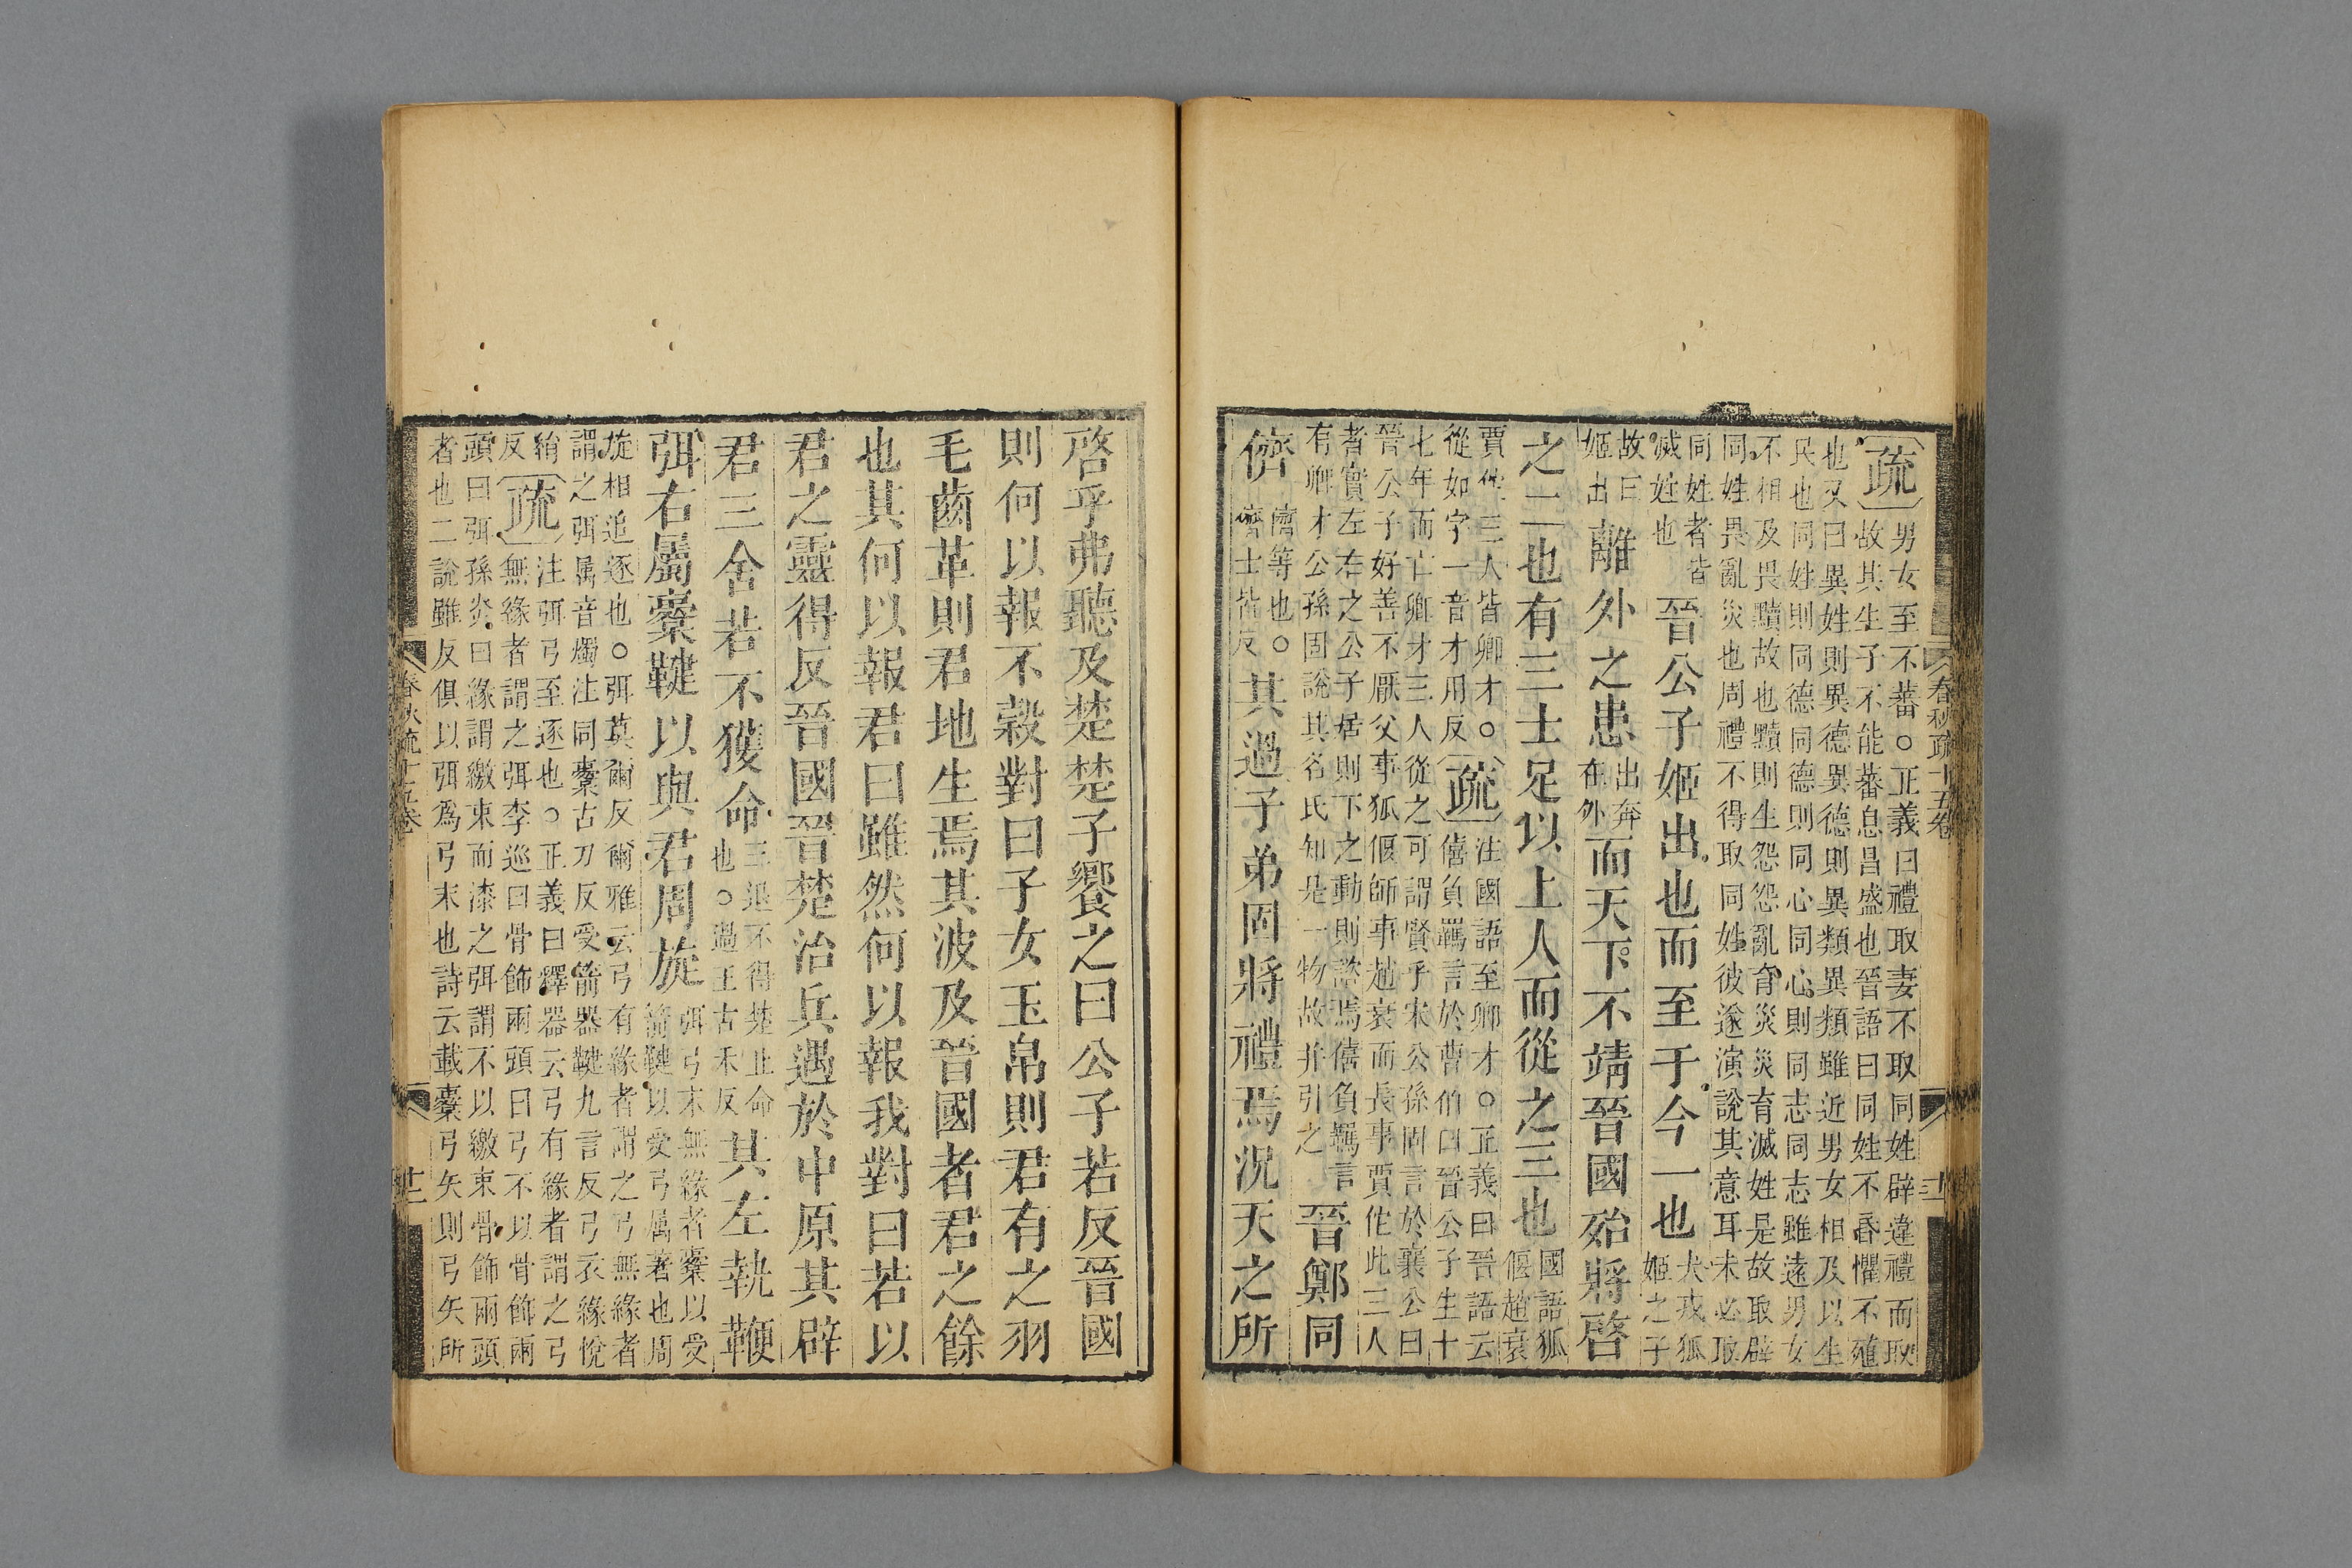 疏 男女至不蕃○正義曰禮取妻不取同姓辟違禮而取
故其生子不能蕃息昌盛也晉語曰同姓不昏懼不殖
也又曰異姓則異德異德則異類異類雖近男女相及以生
民也同姓則同德同德則同心同心則同志同志雖遠男女
不相及畏黷故也黷則生怨怨亂育災災育滅姓是故取辟
同姓畏亂災也周禮不得取同姓彼遂演說其意耳未必取
同姓者皆
滅姓也
晉公子姬出也而至于今一也
犬戎狐
姬之子
故曰
姬出
離外之患
出奔
在外
而天下不靖晉國殆將啓
之二也有三士足以上人而從之三也
國語狐
偃趙衰
賈佗三人皆卿才○
從如字一音才用反
疏
注國語至卿才○正義曰晉語云
僖負羈言於曹伯曰晉公子生十
七年而亡卿才三人從之可謂賢乎宋公孫固言於襄公曰
晉公子好善不厭父事狐偃師事趙衰而長事賈佗此三人
者實左右之公子居則下之動則諮焉僖負羈言
有卿才公孫固說其名氏知是一物故并引之
晉鄭同
儕
儕等也○
儕士皆反
其過子弟固將禮焉況天之所
春秋疏十五卷
啓乎弗聽及楚楚子饗之曰公子若反晉國
則何以報不穀對曰子女玉帛則君有之羽
毛齒革則君地生焉其波及晉國者君之餘
也其何以報君曰雖然何以報我對曰若以
君之靈得反晉國晉楚治兵遇於中原其辟
君三舍若不獲命
三退不得楚止命
也○過王古禾反
其左執鞭
弭右屬櫜鞬以與君周旋
弭弓末無緣者櫜以受
箭鞬以受弓屬著也周
旋相追逐也○弭莫爾反爾雅云弓有緣者謂之弓無緣者
謂之弭屬音燭注同櫜古刀反受箭器鞬九言反弓衣緣悅
絹
反
疏
注弭弓至逐也○正義曰釋器云弓有緣者謂之弓
無緣者謂之弭李巡曰骨飾兩頭曰弓不以骨飾兩
頭曰弭孫炎曰緣謂繳束而漆之弭謂不以繳束骨飾兩頭
者也二說雖反俱以弭爲弓末也詩云載櫜弓矢則弓矢所
春秋疏十五卷